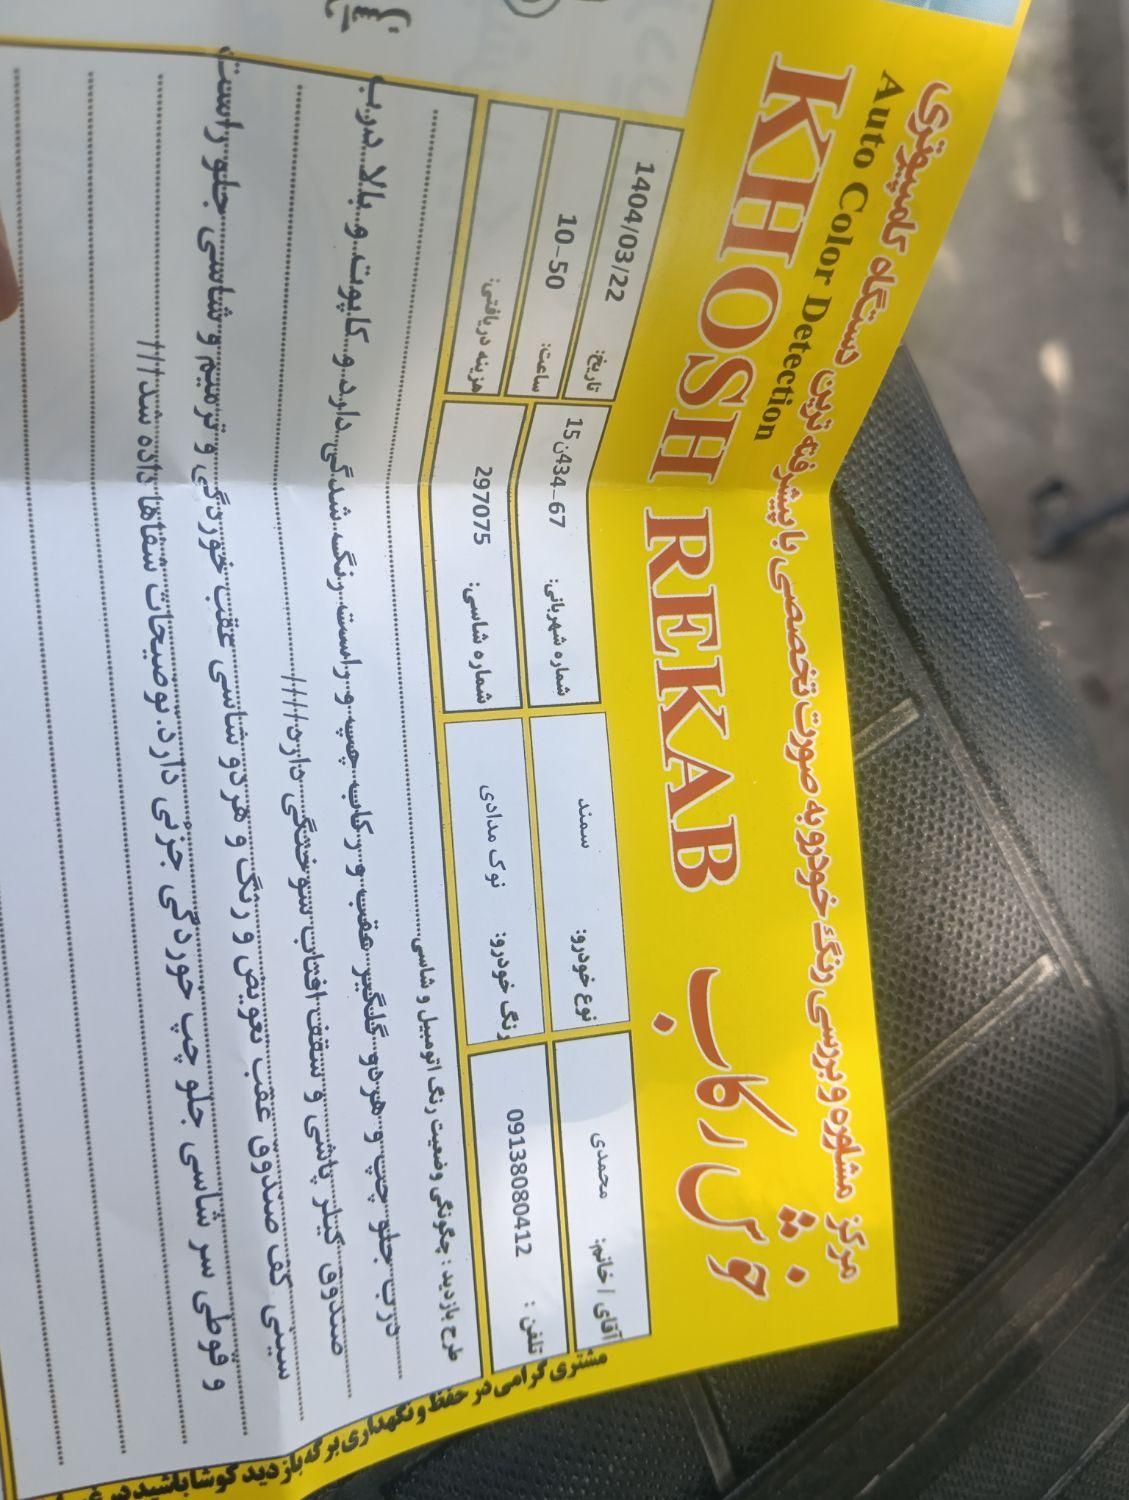 مرکز مشاوره و بررسی رنگ خودرو به صورت تخصصی با پیشرفته ترین دستگاه کامپیوتری
Auto Color Detection
KHOSH REKAB خوش رکاب
آقای / خانم: محمدی
نوع خودرو: سمند
شماره شهربانی: 67-434ن15
تاریخ: 1404/03/22
ساعت: 10-50
تلفن: 09138080412
رنگ خودرو: نوک مدادی
شماره شاسی: 297075
هزینه دریافتی:
طرح بازدید: چگونگی وضعیت رنگ اتومبیل و شاسی
درب جلو چپ و هردو گلگیر عقب و رکاب چپ و راست رنگ شدگی دارد و کاپوت و بالا درب
صندوق کیلر پاشی و سقف افتاب سوختگی دارد////
سینی کف صندوق عقب تعویض و رنگ و هر دو شاسی عقب خوردگی و ترمیم و شاسی جلو راست
و قوطی سر شاسی جلو چپ خوردگی جزئی دارد.توصیحات سفاها داده شد///
مشتری گرامی در حفظ و نگهداری برگه بازدید کوشا باشید در